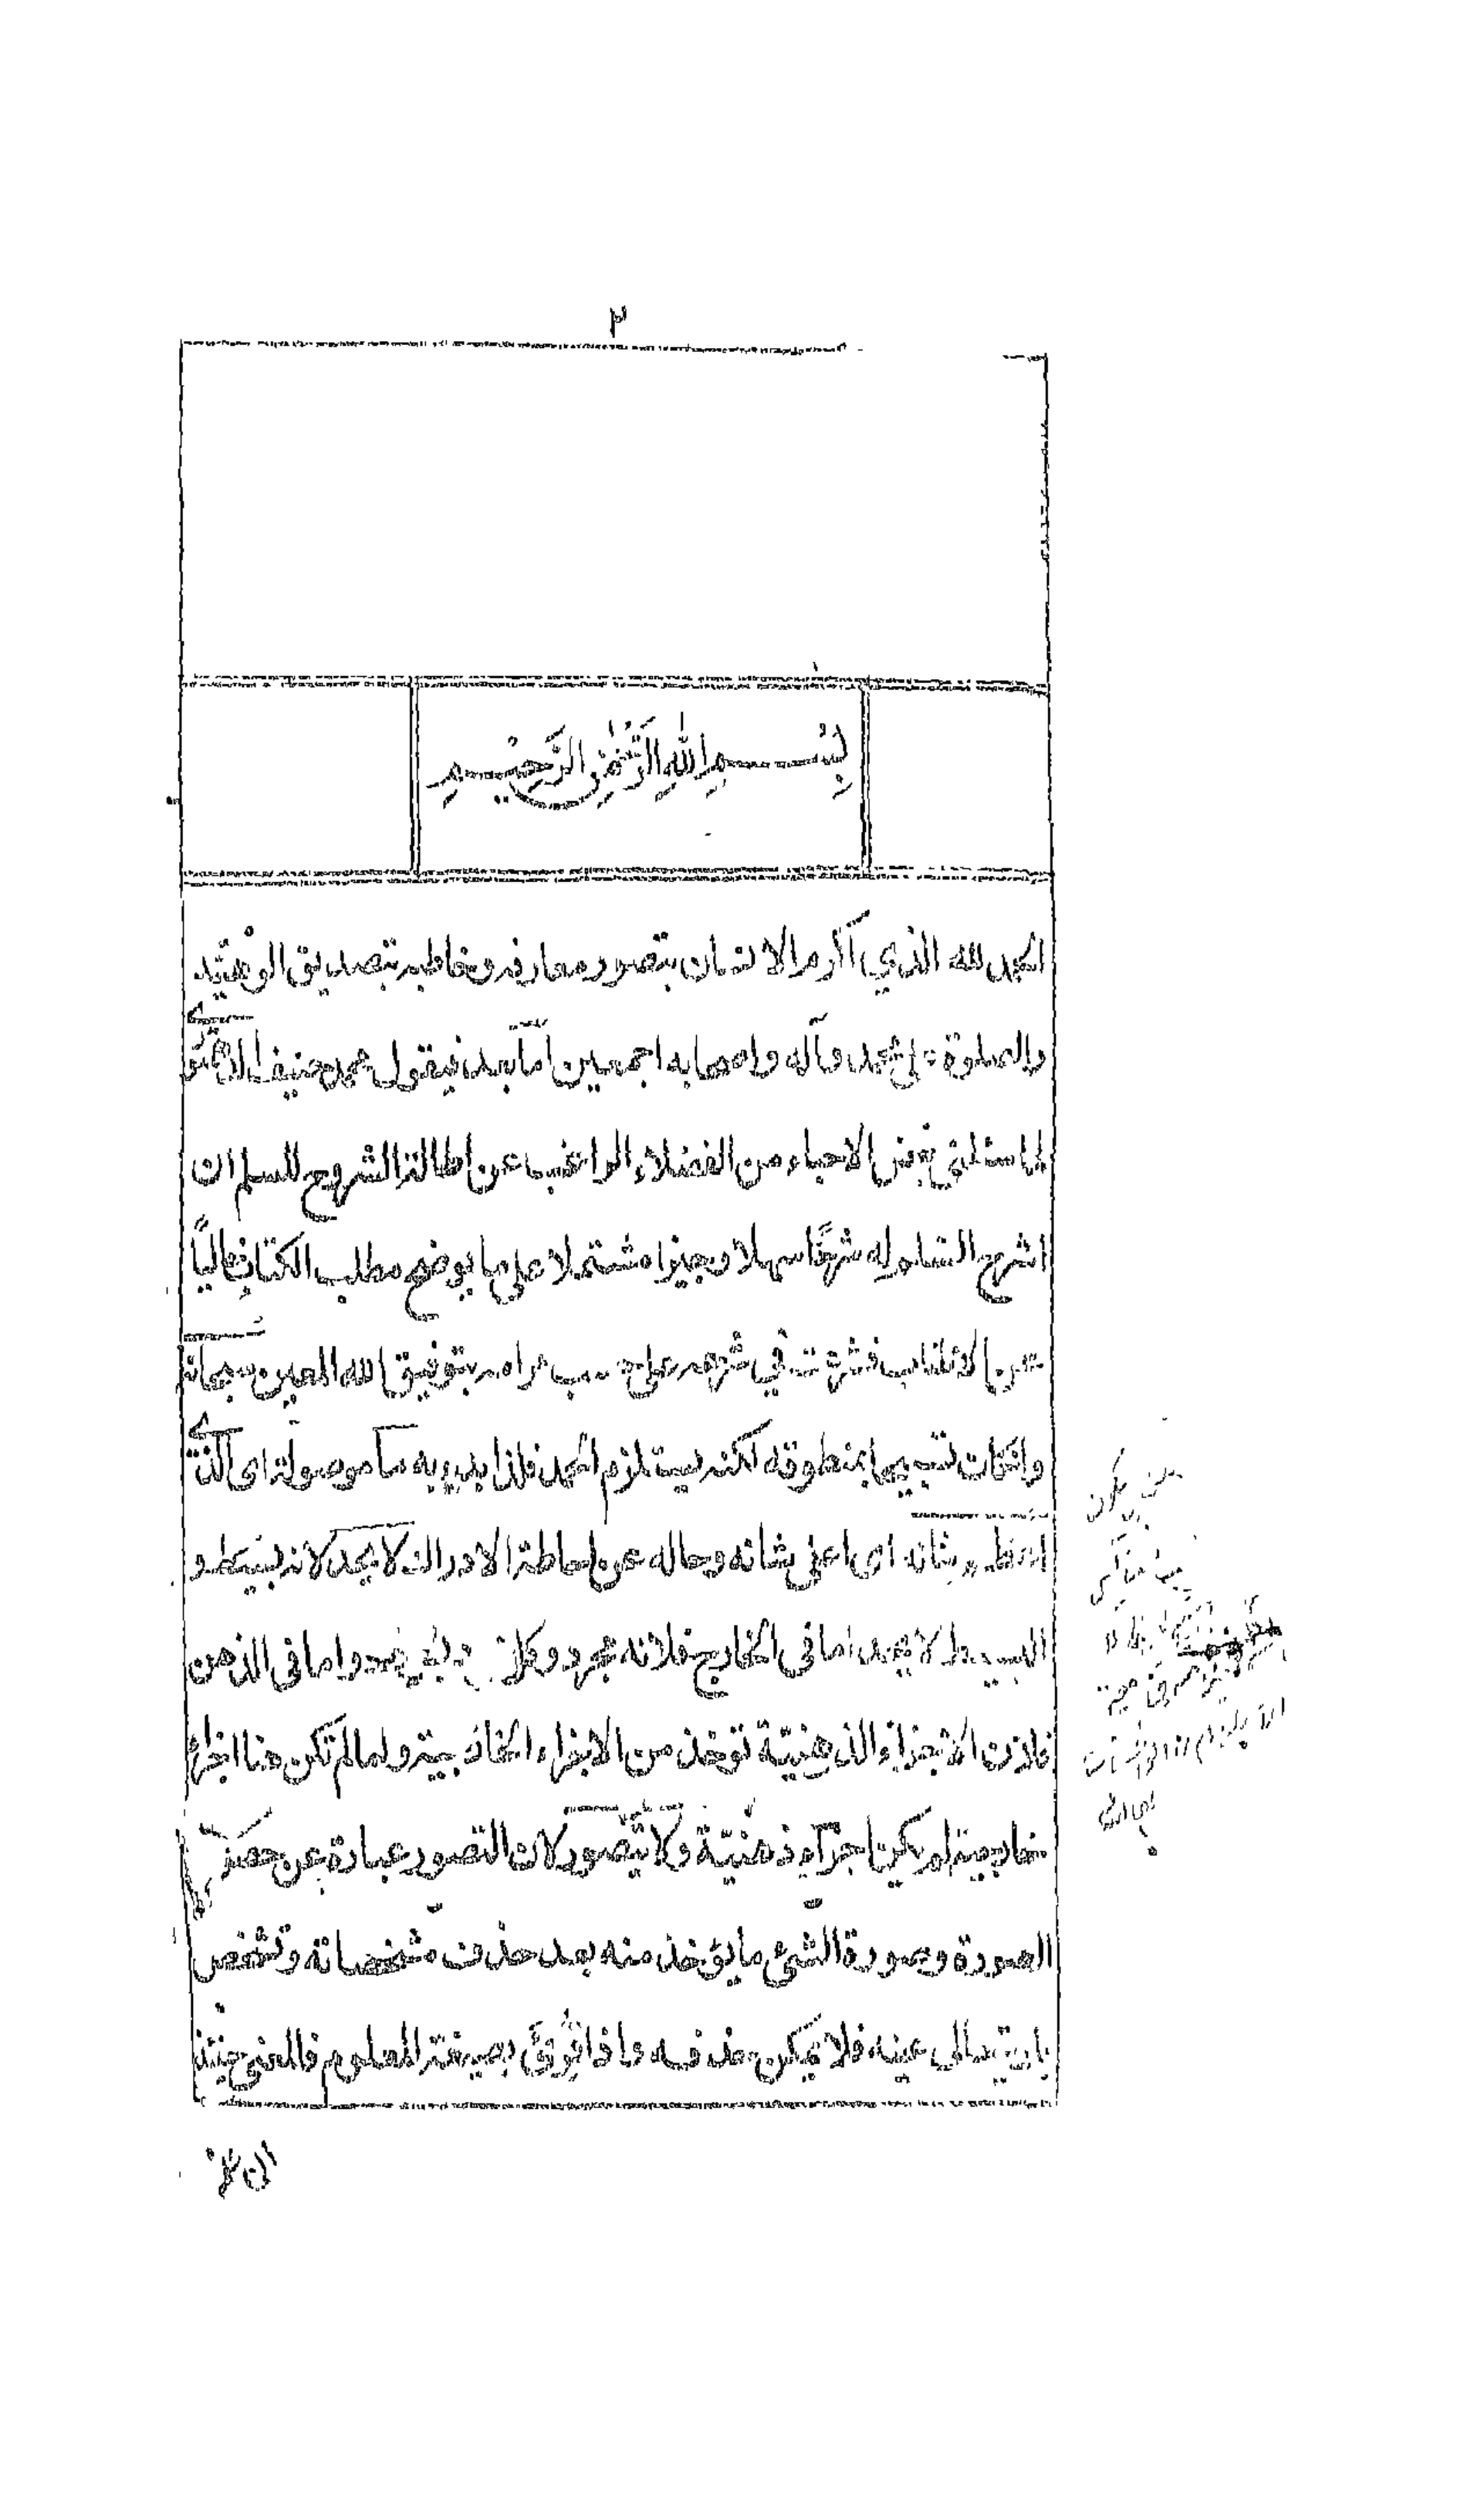 ٢
بِسْمِ اللهِ الرَّحْمٰنِ الرَّحِيْمِ
الحمد لله الذي اكرم الانسان بتصور معارفه وخاطبه بتصديق الوهيته
والصلوة على محمد وآله واصحابه اجمعين اما بعد فيقول محمد حنيف
لما سئلني بعض الاحباء من الفضلاء الراغب عن اطالة الشروح للسلم ان
اشرح السلم له شرحًا سهلا وجيزا مشتملا على ما يوضح مطلب الكتاب خاليًا
عن الاطناب فشرعت في شرحه على حسب مرامه بتوفيق الله المعين سبحانه
وان كان تسبيحا بمنطوقه لكنه يستلزم الحمد فلذا بدء به ما موصولة اى الذي
اعظم شانه اى اعلى شانه وحاله عن احاطة الادراك لا يحد لانه بسيط و
البسيط لا يحد اما فى الخارج فلانه مجرد وكل مجرد واما فى الذهن
فلان الاجزاء الذهنيّة توخذ من الاجزاء الخارجية ولما لم تكن هنا اجزاء
خارجية لم يكن اجزآء ذهنيّة ولا يتصور لان التصور عبارة عن حصول
الصورة وصورة الشئ ما يؤخذ منه بعد حذف مشخصاته وتشخص
بارى تعالى عينه فلا يمكن حذفه واذا قرئ بصيغة المعلوم فالمعنى حينئذ